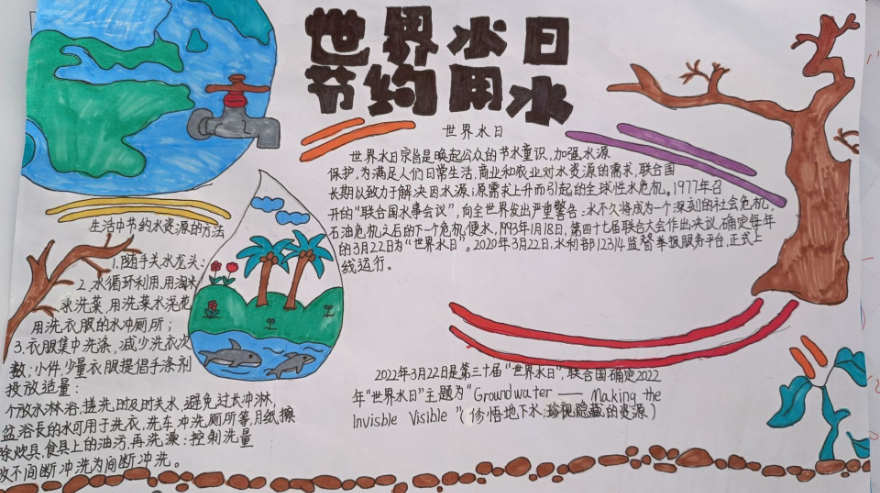 世界水日
节约用水
世界水日
世界水日宗旨是唤起公众的节水意识,加强水源
保护,为满足人们日常生活,商业和农业对水资源的需求,联合国
长期以致力于解决因水源;源需求上升而引起的全球性水危机。1977年召
开的“联合国水事会议”,向全世界发出严重警告:水不久将成为一个深刻的社会危机,
石油危机之后的下一个危机便水,1993年1月18日,第四十七届联合大会作出决议,确定每年
的3月22日为“世界水日”。2020年3月22日,水利部12314监督举报服务平台,正式上
线运行。
生活中节约水资源的方法
1.随手关水龙头:
2.水循环利用,用淘米
水洗菜,用洗菜水浇花
用洗衣服的水冲厕所;
3.衣服集中洗涤,减少洗衣次
数;小件,少量衣服提倡手涤剂
投放适量:
个放水淋浴,搓洗时及时关水,避免过长冲淋,
盆浴长的水可用于洗衣,洗车冲洗厕所等,月纸擦
除炊具,食具上的油污,再洗澡:控制洗量
改不间断冲洗为间断冲洗。
2022年3月22日是第三十届“世界水日”,联合国确定2022
年“世界水日”主题为“Groundwater —— Making the
Invisble Visible”(修悟地下水,珍视隐藏的资源)